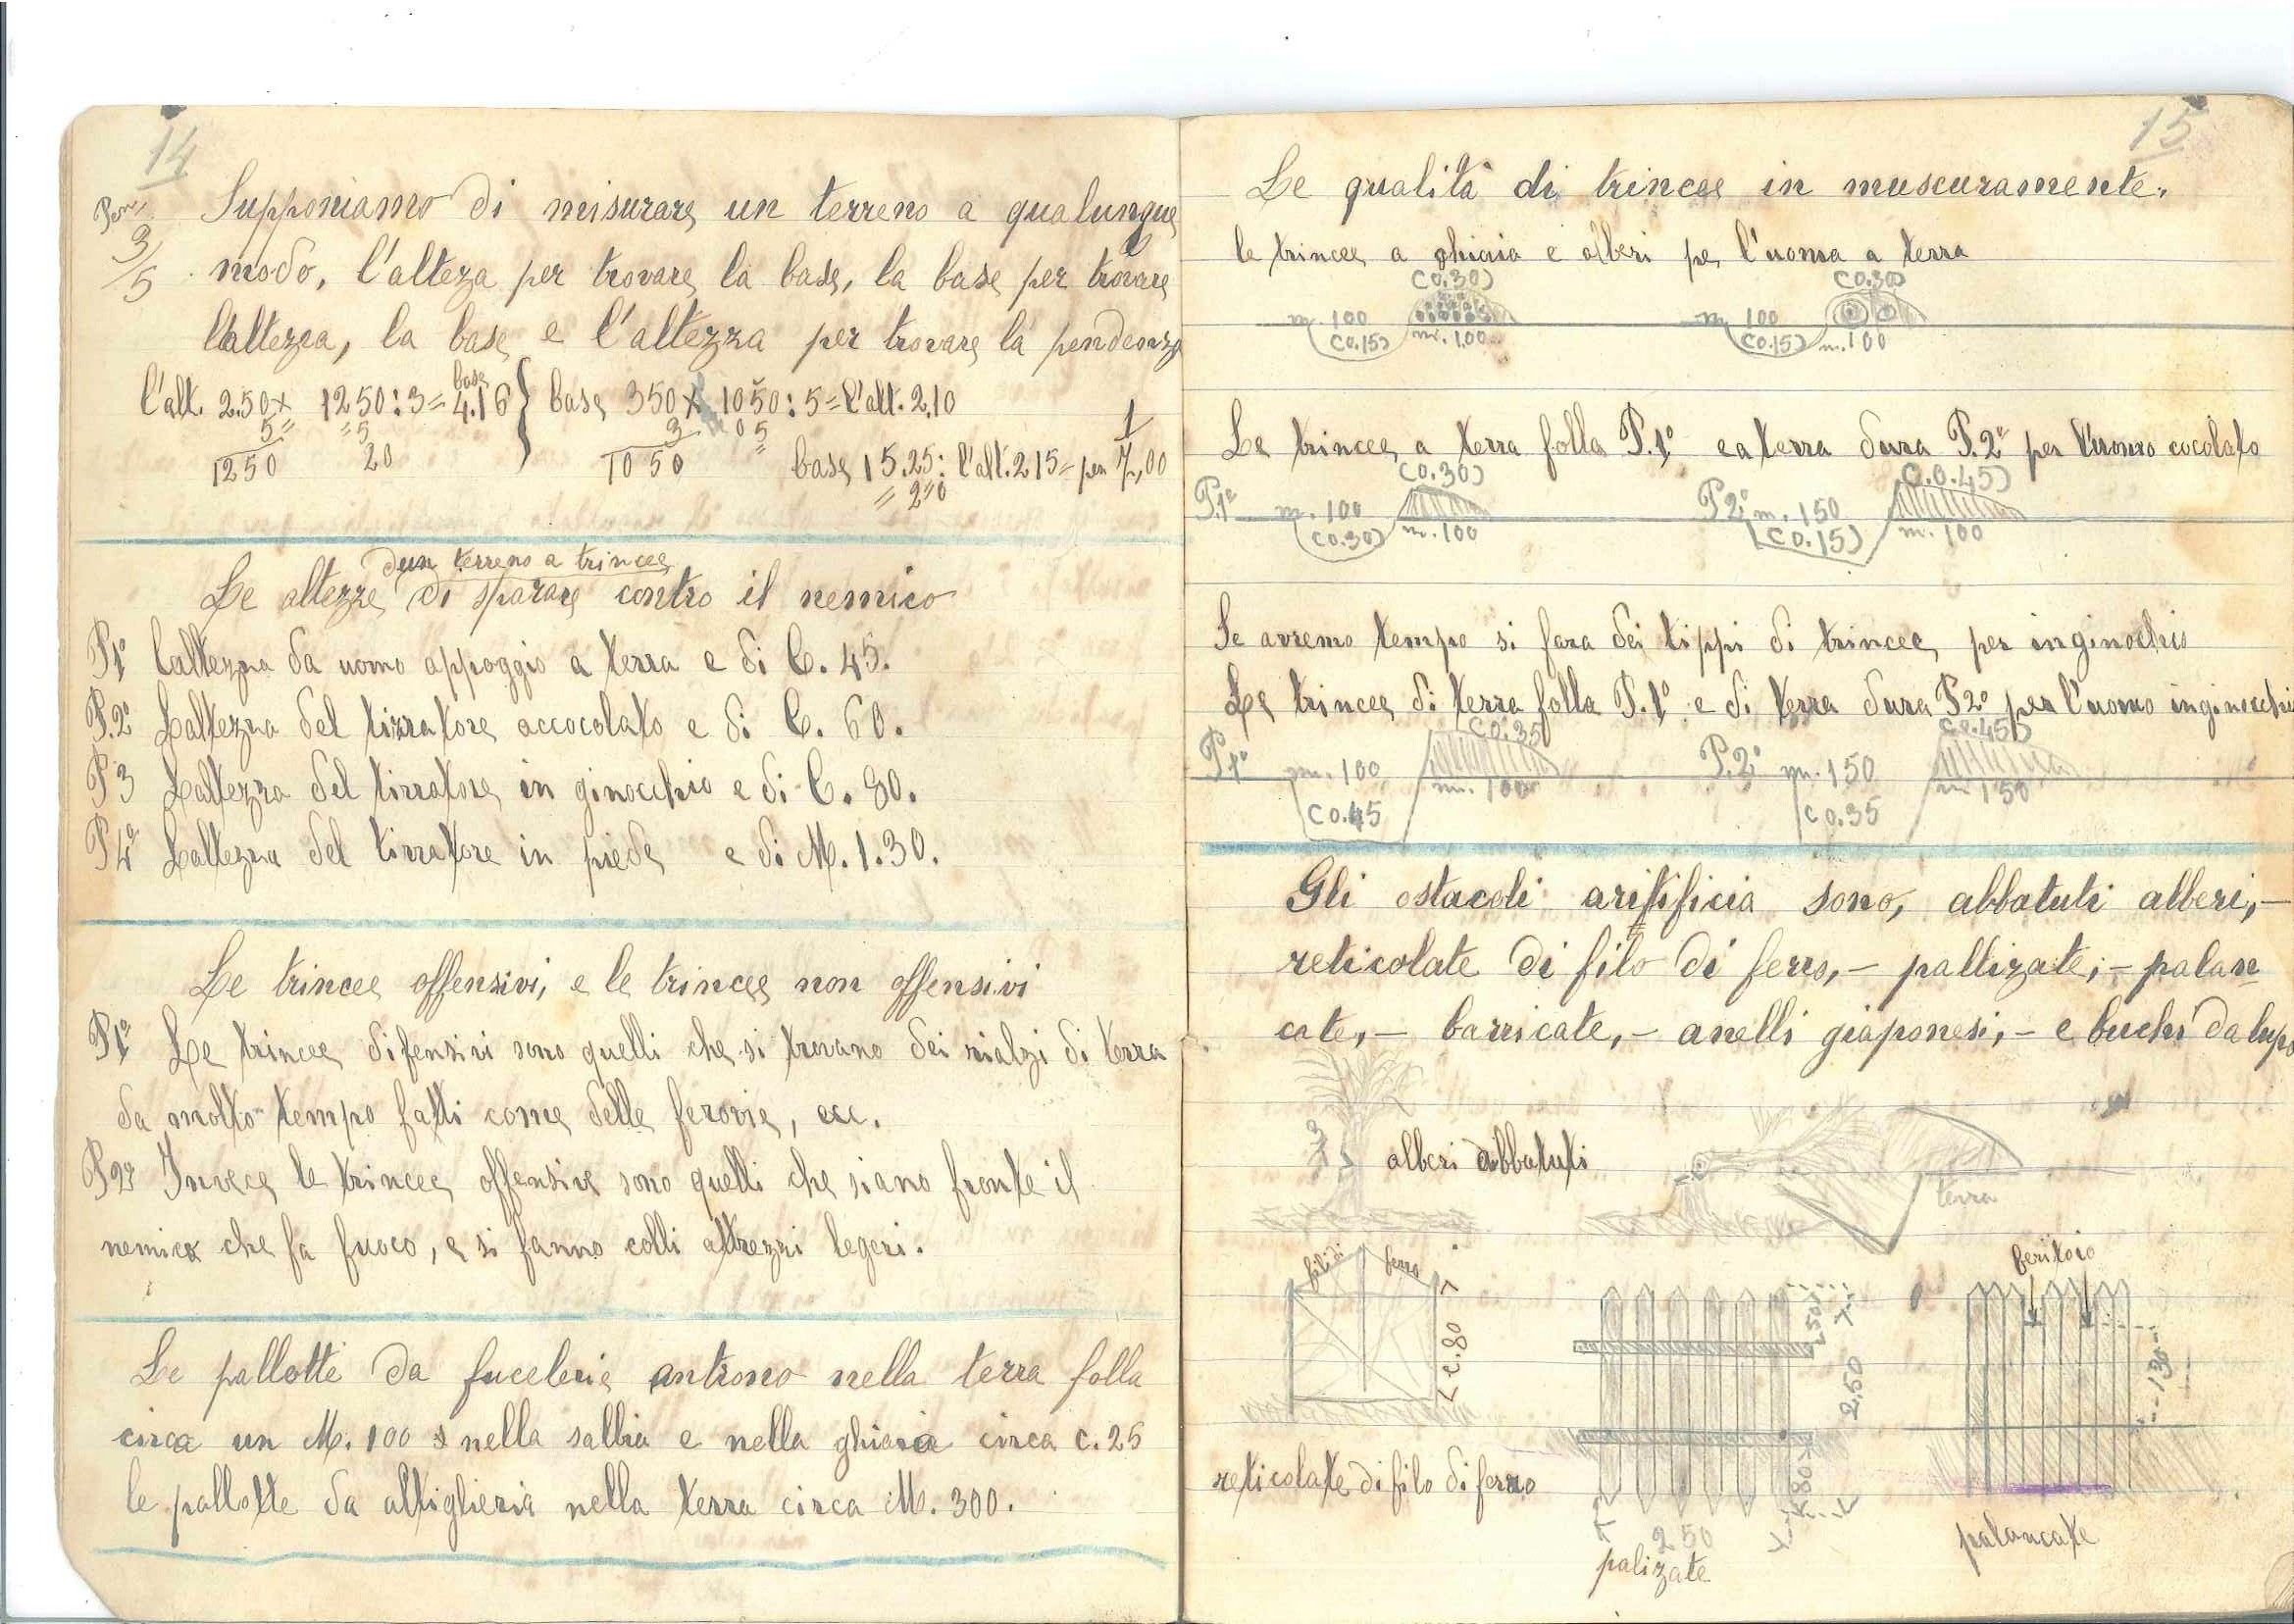 14
Pen. 3/5
Supponiamo di misurare un terreno a qualunque
modo, l'alteza per trovare la base, la base per trovare
l'altezza, la base e l'altezza per trovare la pendenza
l'alt. 2.50 x 1250 : 3 = base 4.16 } base 350 x 1050 : 5 = l'alt. 2.10
5 = 5 3 05
1250 20 1050 base 15.25 : l'alt. 215 = pen 1/7,00
dun terreno a trincee
Le altezze di sparare contro il nemico
P1° Laltezza da uomo appoggio a terra e di C. 45.
P.2° Laltezza del tirratore accocolato e di C. 60.
P3 Laltezza del tirratore in ginocchio e di C. 80.
P4° Laltezza del tirratore in piede e di M. 1.30.
Le trincee offensivi, e le trincee non offensivi
P1° Le trincee difensivi sono quelli che si trovano dei rialzi di terra
da molto tempo fatti come delle ferovie, ecc.
P2° Invece le trincee offensive sono quelli che siano fronte il
nemico che fa fuoco, e si fanno colli attrezzi legeri.
Le pallotte da fucelerie antrono nella terra folla
circa un M. 100 nella salbia e nella ghiaia circa c. 25
le pallotte da altiglieria nella terra circa M. 300.
15
Le qualità di trincee in muscuramente.
le trincee a ghiaia e alberi pe l'uoma a terra
C0.30) C0.30)
m. 100 m. 100
C0.15) m. 1.00 C0.15) m. 100
Le trincee a terra folla P.1° e a terra dura P.2° per l'uomo cocolato
C0.30) C.0.45)
P.1° m. 100 P.2° m. 150
C0.30) m. 100 C0.15) m. 100
Se avremo tempo si fara dei tippi di trincee per inginochio
Le trincee di terra folla P.1° e di terra dura P2° per l'uomo inginocchio
C0.35 C0.45)
P.1° m. 100 P.2° m. 150
C0.45 m. 100 C0.35 m 150
Gli ostacoli aritificia sono, abbatuti alberi,-
reticolate di filo di ferro,- paltizate,- palan
cate,- barricate,- anelli giaponesi,- e buchi da lupo
alberi abbatuti
terra
fili di ferro
c.80
reticolate di filo di ferro
50
2.50
80
2 50
palizate
feritoio
130
palancate